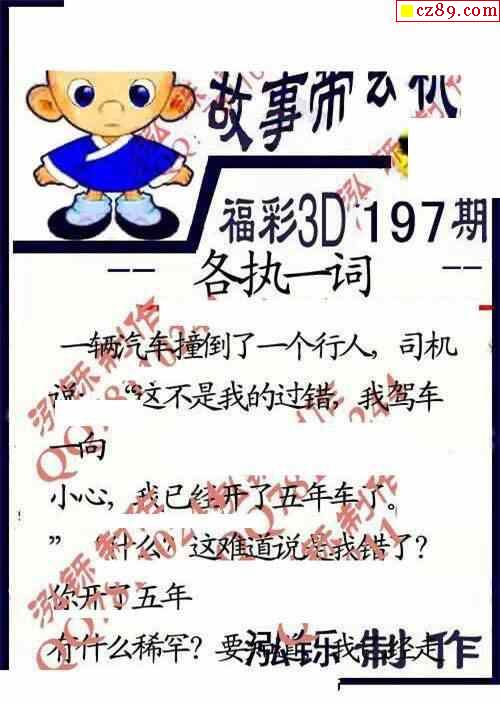 cz89.com
故事带玄机
福彩3D 197期
-- 各执一词 --
一辆汽车撞倒了一个行人，司机
说：“这不是我的过错，我驾车
一向
小心，我已经开了五年车了。
”“什么？这难道说是我错了？
你开了五年
有什么稀罕？要 我已经走
泓铄制作